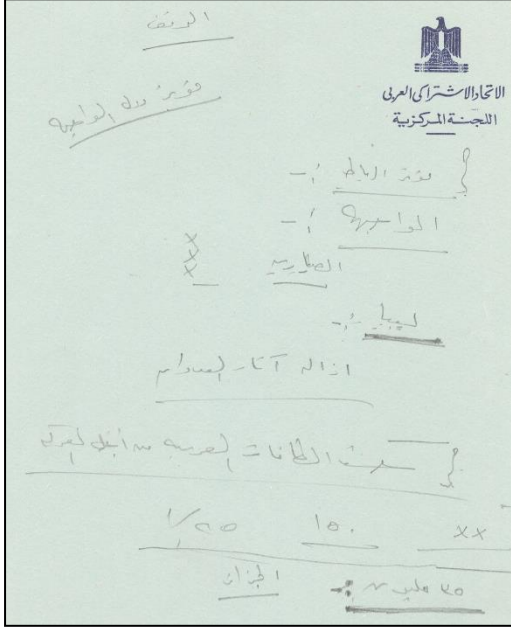 الموقف
الاتحاد الاشتراكى العربى
اللجنة المركزية
مؤتمر دول المواجهة
مؤتمر الرباط :-
المواجهة :-
xxx
ليبيا :-
ازالة آثار العدوان
الطاقات العربية من أجل المعركة
xx ١٥٠ ١/٢٥
٣٥ مليون